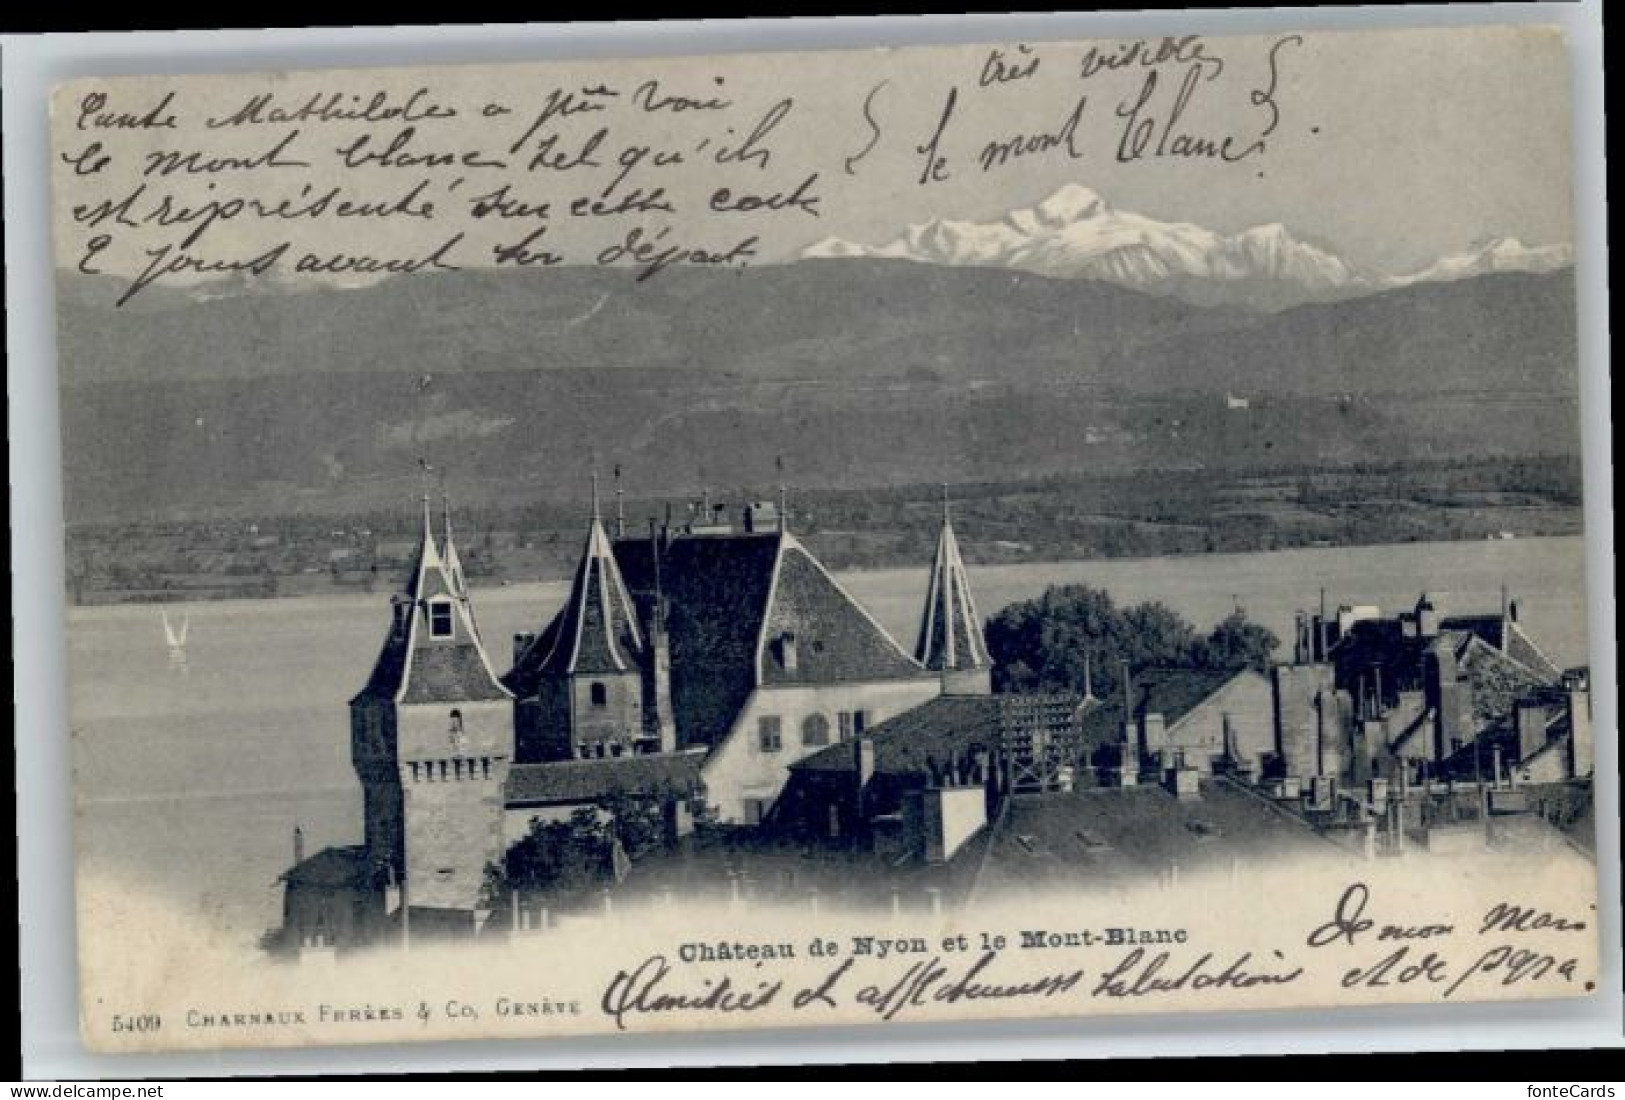 Tante Mathilde a pu voir
le mont blanc tel qu'il
est représenté sur cette carte
2 jours avant son départ.
très visible
le mont blanc.
Château de Nyon et le Mont-Blanc
De mon mari
Amitiés et affectueuses salutations et de papa.
5409 CHARNAUX FRÈRES & Co, GENÈVE
delcampe.net
fonteCards